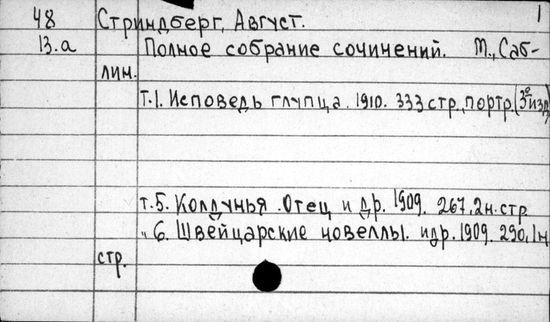 48 Стриндберг, Август. 1
13.а Полное собрание сочинений. М., Саб-
лин.
Т.1. Исповедь глупца. 1910. 333 стр., портр. (3е изд.)
т.5. Колдунья. Отец и др. 1909. 267, 2 н. стр
" 6. Швейцарские новеллы. и др. 1909. 290, 1 н
стр.